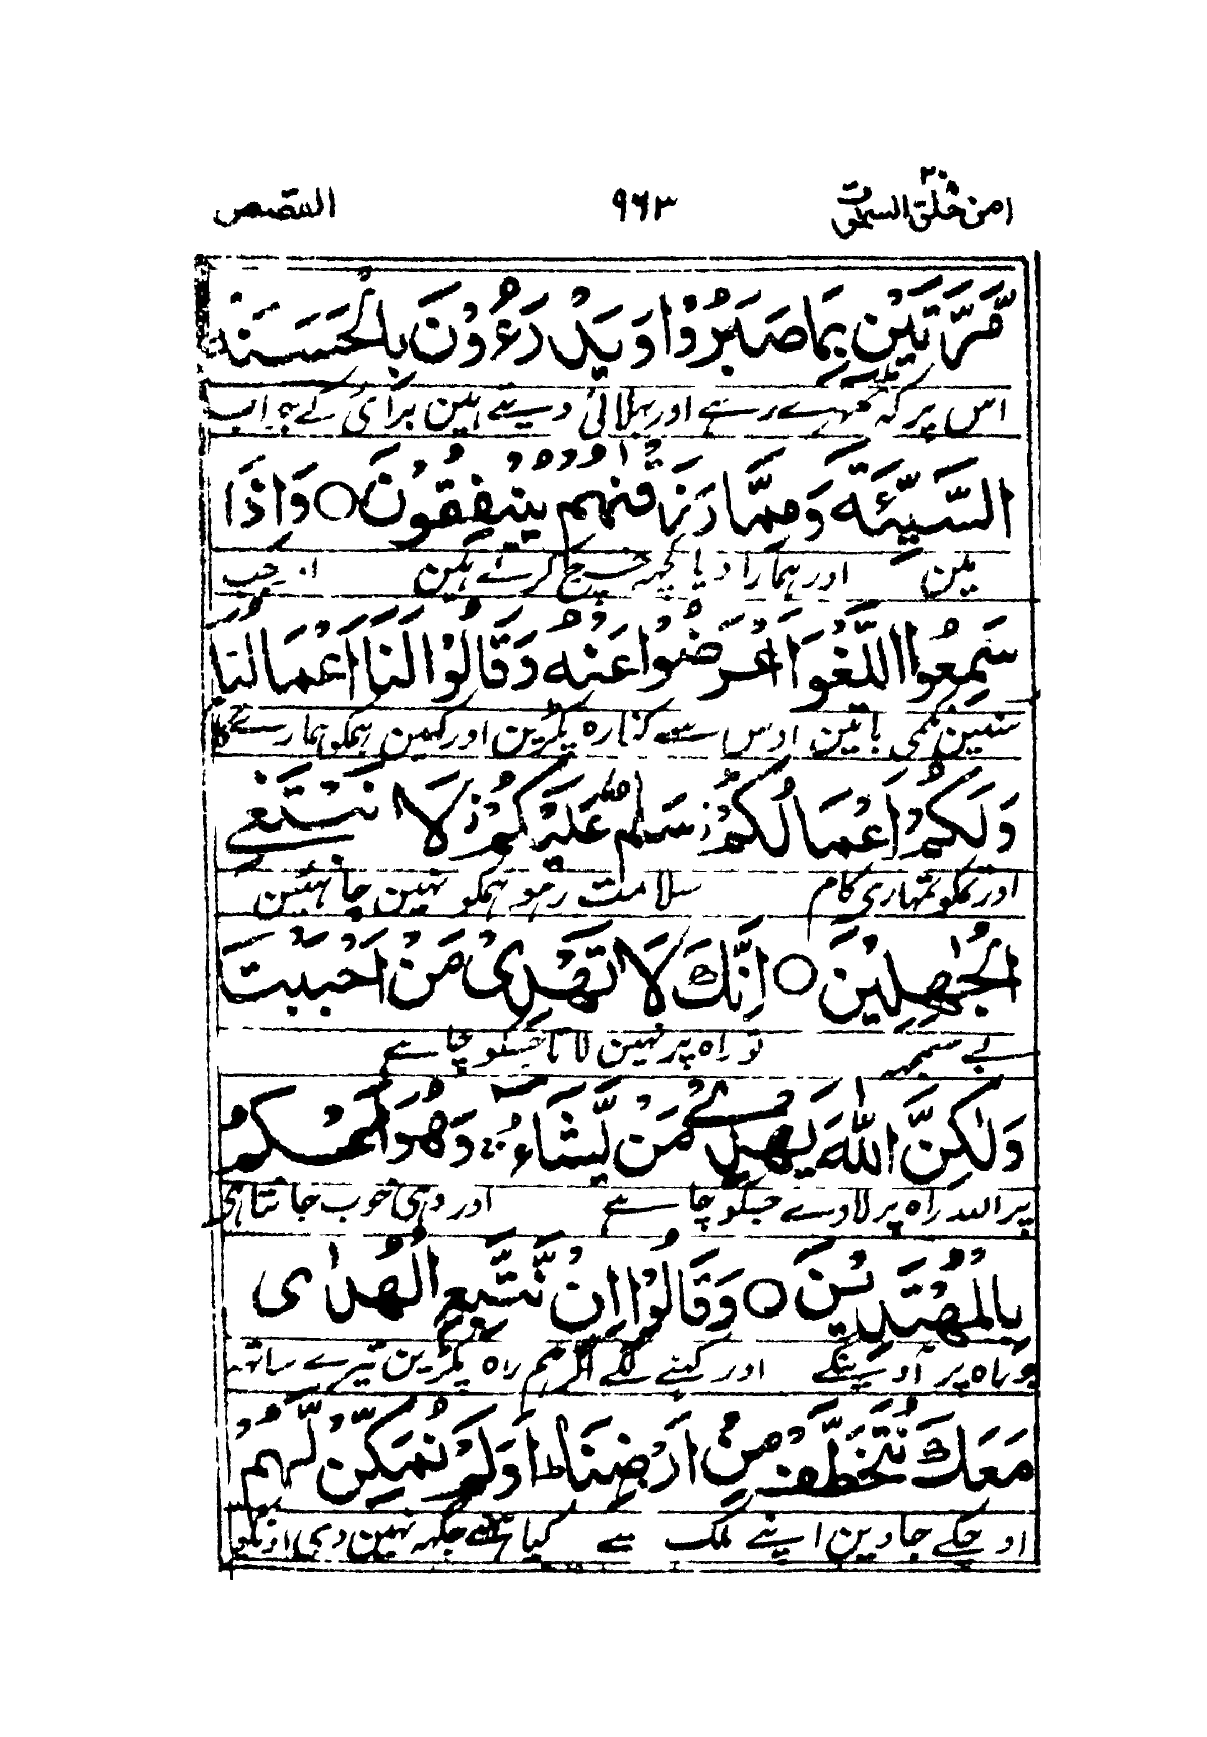 امن خلق السمٰوٰت ۲۰
۹۶۳
القصص
مَّرَّتَيْنِ بِمَا صَبَرُوْا وَيَدْرَءُوْنَ بِالْحَسَنَةِ
اس پر کہ ٹھہرے رہے اور بھلائی دیتے ہین برائی کے جواب
السَّيِّئَةَ وَمِمَّا رَزَقْنٰهُمْ يُنْفِقُوْنَ ○ وَاِذَا
مین اور ہمارا دیا کچھہ خرچ کرتے ہین اور جب
سَمِعُوا اللَّغْوَ اَعْرَضُوْا عَنْهُ وَقَالُوْا لَنَآ اَعْمَالُنَا
سنین نکمی باتین اوس سے کنارہ پکڑین اور کہین ہمکو ہمارے کام
وَلَكُمْ اَعْمَالُكُمْ ز سَلٰمٌ عَلَيْكُمْ ز لَا نَبْتَغِي
اور تمکو تمہاری کام سلامت رہو ہمکو نہین چاہئین
الْجٰهِلِيْنَ ○ اِنَّكَ لَا تَهْدِيْ مَنْ اَحْبَبْتَ
بے سمجہہ تو راہ پر نہین لاتا جسکو چاہے
وَلٰكِنَّ اللّٰهَ يَهْدِيْ مَنْ يَّشَآءُ ۚ وَهُوَ اَعْلَمُ
پر اللہ راہ پر لاوے جسکو چاہے اور وہی خوب جانتا ہی
بِالْمُهْتَدِيْنَ ○ وَقَالُوْٓا اِنْ نَّتَّبِعِ الْهُدٰى
جو راہ پر آوینگے اور کہنے لگے اگر ہم راہ پکڑین تیرے ساتھہ
مَعَكَ نُتَخَطَّفْ مِنْ اَرْضِنَا ط اَوَلَمْ نُمَكِّنْ لَّهُمْ
اوچکے جاوین اپنے ملک سے کیا ہمنے جگہہ نہین دی اونکو